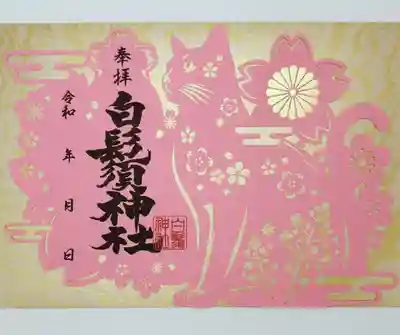 奉拝
白鬚須神社
令和 年 月 日
白鬚
神社